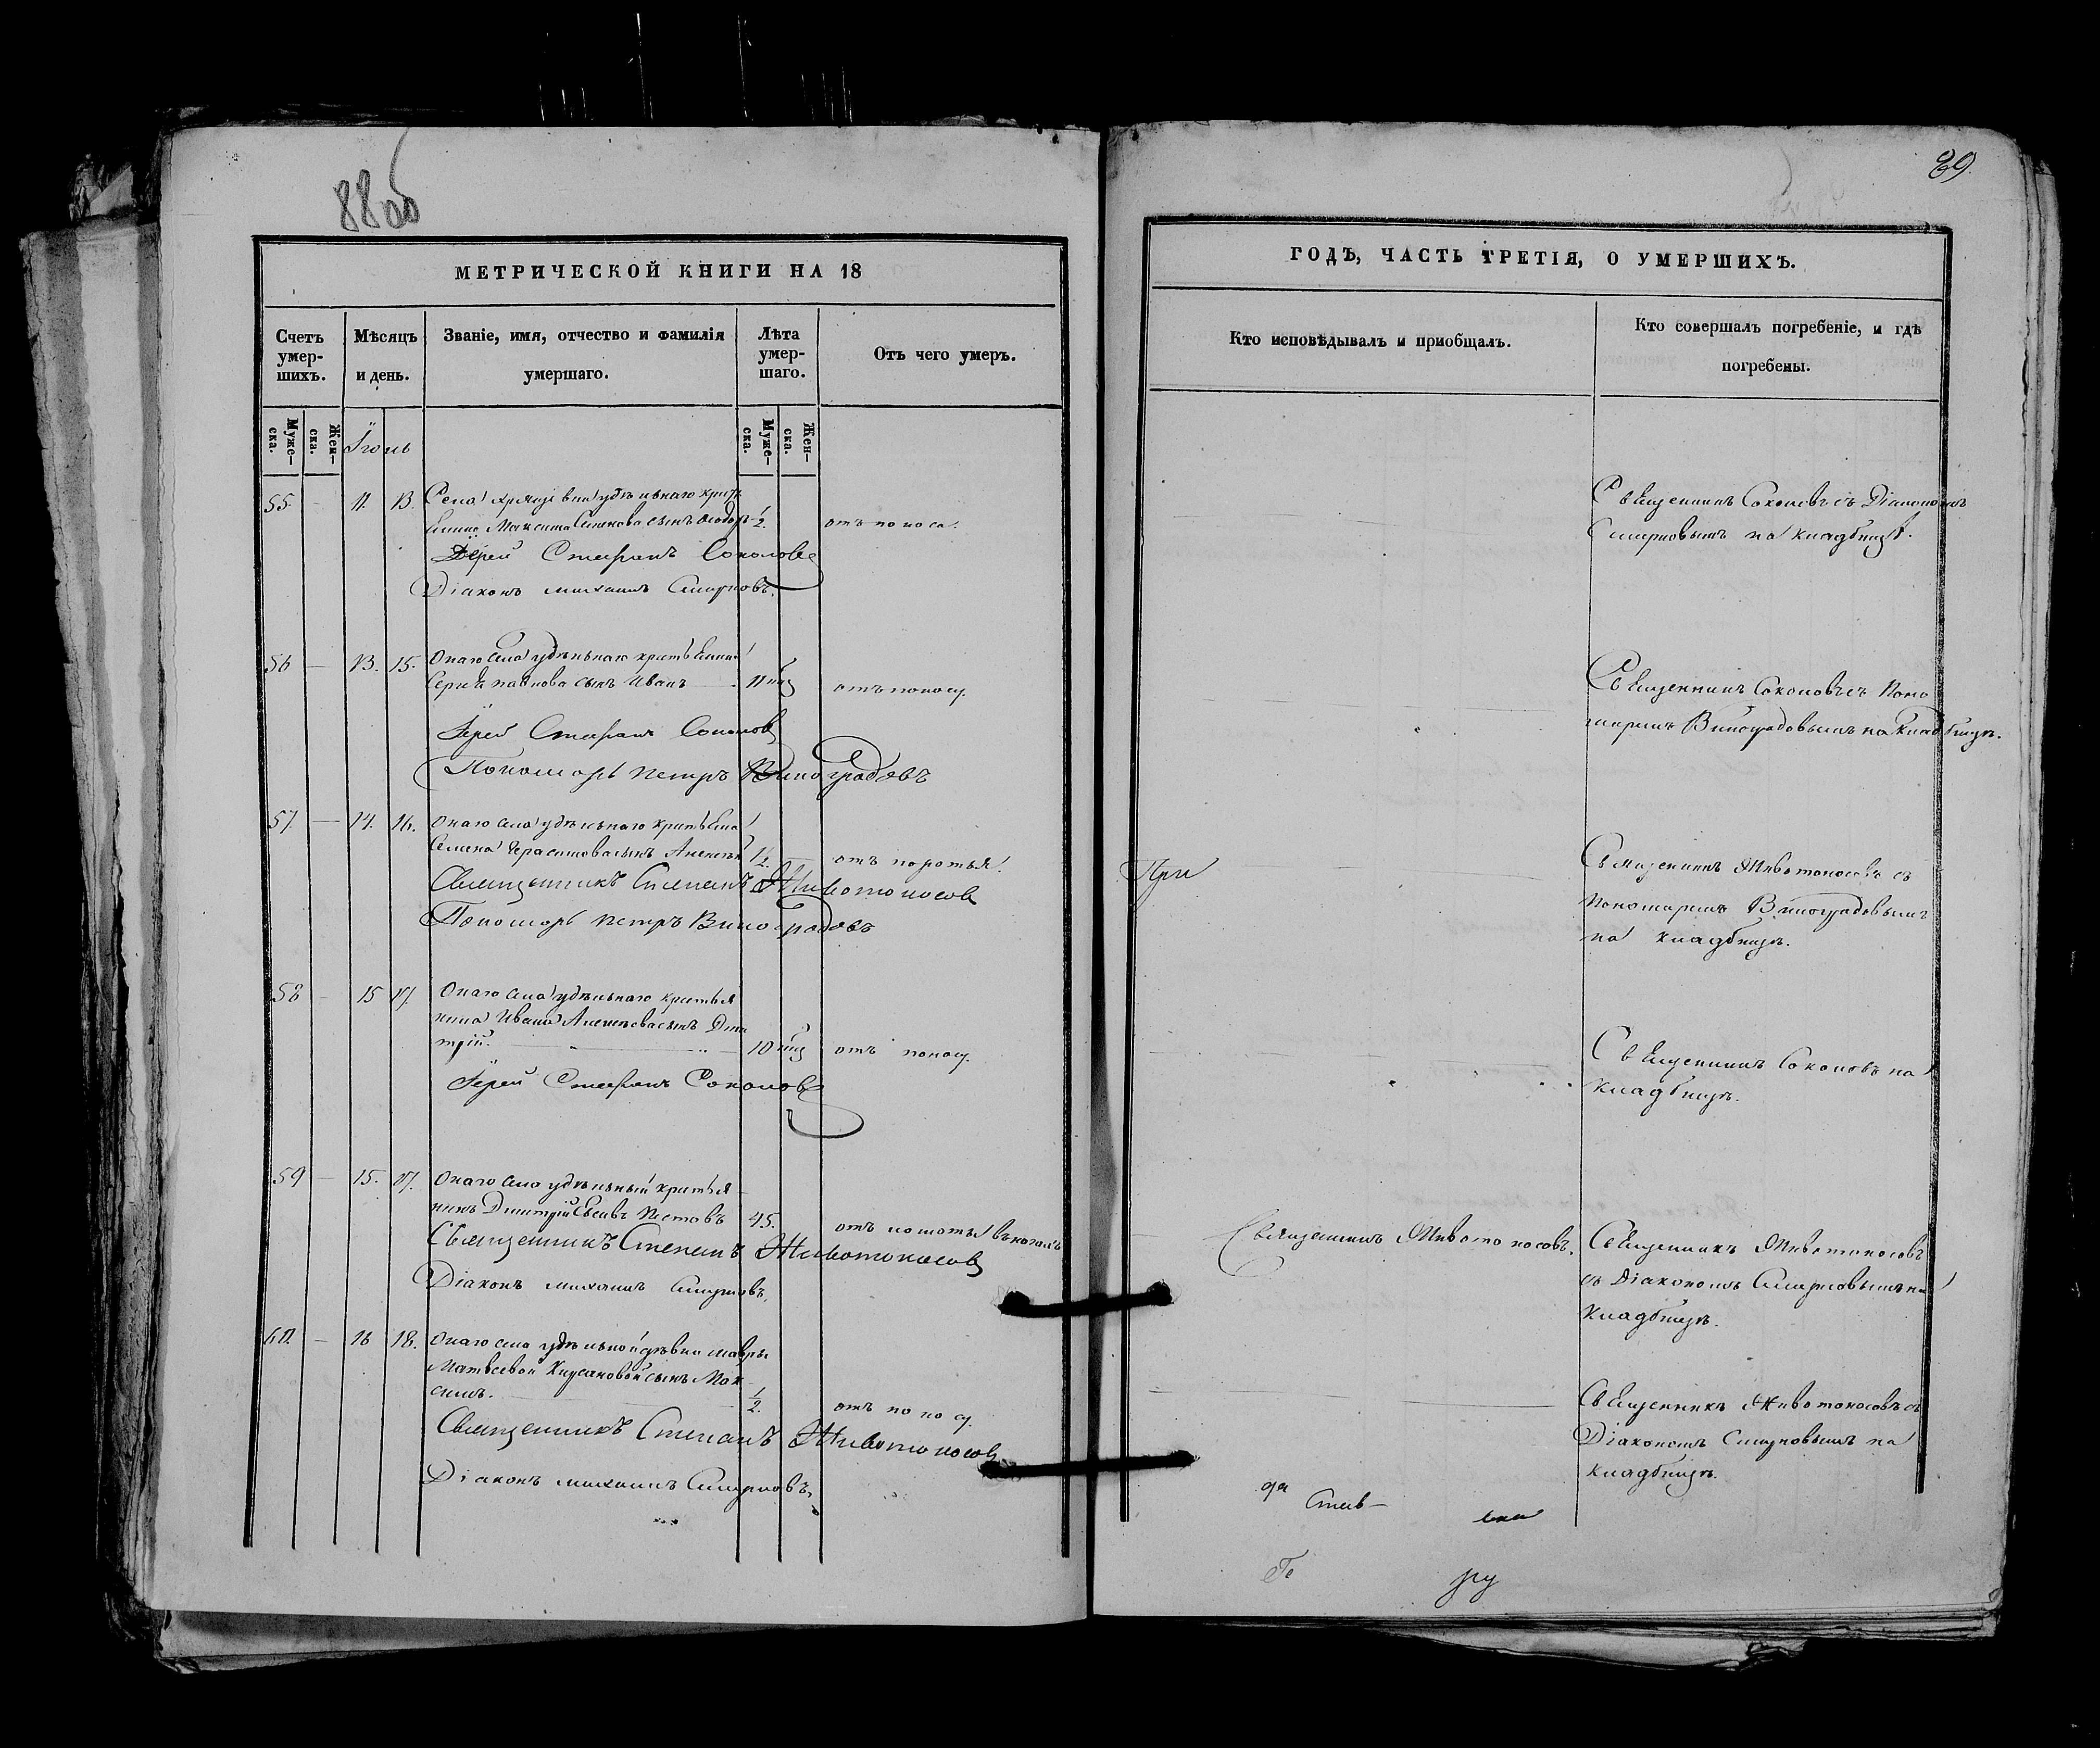 88 об
МЕТРИЧЕСКОЙ КНИГИ НА 18
Счетъ умер-шихъ.
Мѣсяцъ и день.
Званіе, имя, отчество и фамилія умершаго.
Лѣта умер-шаго.
Отъ чего умеръ.
Муже-ска.
Жен-ска.
Іюнь
Муже-ска.
Жен-ска.
55 - 11. 13. Села удѣльнаго крестья
Максима Семенова сынъ Ѳеодоръ 1/2. отъ поноса.
Іерей Стефанъ Соколовъ
Діаконъ Михаилъ Смирновъ.
56 — 13. 15. Онаго села удѣльнаго крестьянина
Сергѣя сынъ Иванъ — 11 отъ поносу.
Іерей Стефанъ Соколовъ
Пономарь Петръ Виноградовъ
57. — 14. 16. Онаго села удѣльнаго
Семена Герасимова сынъ Алексѣй 1/2. отъ
Священникъ Степанъ Животоносовъ
Пономарь Петръ Виноградовъ
58 - 15 17. Онаго села удѣльнаго крестья
нина Ивана Алексѣева сынъ Дми
трій. — 10 отъ поносу.
Іерей Стефанъ Соколовъ
59 — 15. 17. Онаго села удѣльный крестья
нинъ Дмитрій 45. отъ
Священникъ Степанъ Животоносовъ
Діаконъ Михаилъ Смирновъ.
60. — 16 18. Онаго села удѣльной дѣвки Мавры
Матвѣевой сынъ Мак
симъ. 1/2. отъ поносу.
Священникъ Степанъ Животоносовъ
Діаконъ Михаилъ Смирновъ.
89.
ГОДЪ, ЧАСТЬ ТРЕТІЯ, О УМЕРШИХЪ.
Кто исповѣдывалъ и приобщалъ.
Кто совершалъ погребеніе, и гдѣ
погребены.
Священникъ Соколовъ съ Діакономъ
Смирновымъ на кладбищѣ.
Священникъ Соколовъ съ Поно
маремъ Виноградовымъ на кладбищѣ.
При
Священникъ Животоносовъ съ
Пономаремъ Виноградовымъ
на кладбищѣ.
Священникъ Соколовъ на
кладбищѣ.
Священникъ Животоносовъ. Священникъ Животоносовъ
съ Діакономъ Смирновымъ на
кладбищѣ.
Священникъ Животоносовъ съ
Діакономъ Смирновымъ на
кладбищѣ.